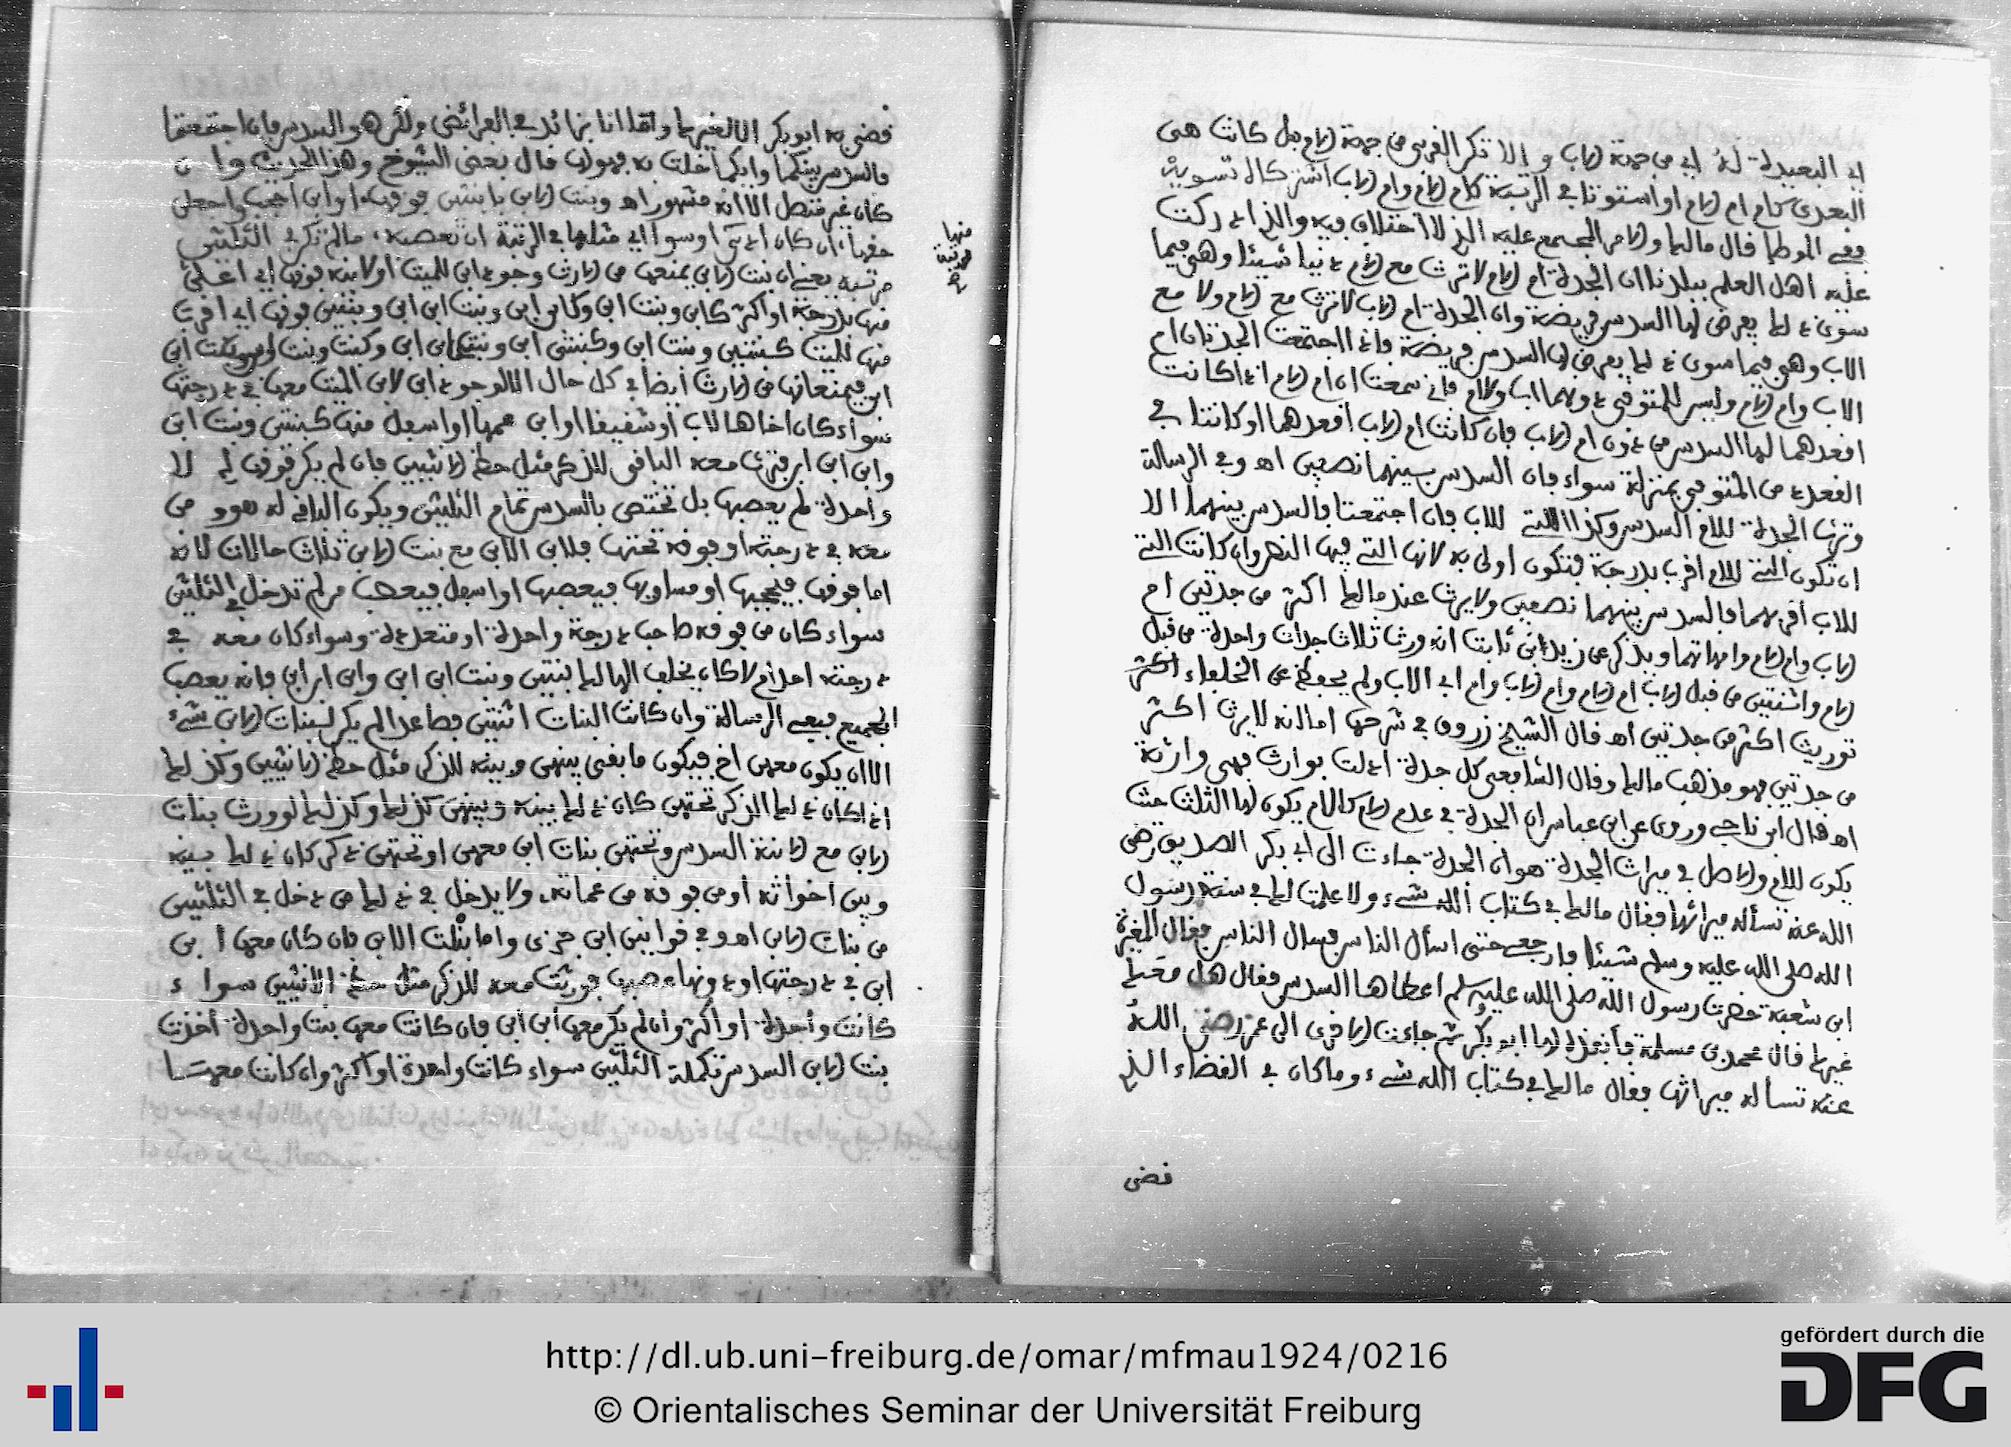 اي البعيدة له اي من جهة الاب والا تكن القربى من جهة الام بل كانت هي
البعدى كام ام الام او استوتا في الرتبة كام الام وام الاب اشتركا بالسوية
ففي الموطا قال مالك والامر المجتمع عليه الذي لا اختلاف فيه والذي ادركت
عليه اهل العلم ببلدنا ان الجدة ام الام لا ترث مع الام دنيا شيئا وهي فيما
سوى ذلك يفرض لها السدس فريضة وان الجدة ام الاب لا ترث مع الام ولا مع
الاب وهي فيما سوى ذلك يفرض لها السدس فريضة فاذا اجتمعت الجدتان ام
الاب وام الام وليس للمتوفى دونهما اب ولا ام فاني سمعت ان ام الام اذا كانت
اقعدهما لها السدس من دون ام الاب فان كانت ام الاب اقعدهما او كانتا في
القعدد من المتوفى بمنزلة سواء فان السدس بينهما نصفين اه وفي الرسالة
وترث الجدة للام السدس وكذا التي للاب فان اجتمعتا فالسدس بينهما الا
ان تكون التي للام اقرب بدرجة فتكون اولى به لانها التي فيها النص وان كانت التي
للاب اقربهما فالسدس بينهما نصفين ولا يرث عند مالك اكثر من جدتين ام
الاب وام الام وامهاتهما ويذكر عن زيد ابن ثابت انه ورث ثلاث جدات واحدة من قبل
الام واثنتين من قبل الاب ام الام وام الاب وام ابي الاب ولم يحفظ عن الخلفاء
توريث اكثر من جدتين اه قال الشيخ زروق في شرحها اما انه لا يرث اكثر
من جدتين فهو مذهب مالك وقال الشافعي كل جدة ادلت بوارث فهي وارثة
اه قال ابن ناجي وروي عن ابن عباس ان الجدة في عدم الام كالام يكون لها الثلث حيث
يكون للام والاصل في ميراث الجدة هو ان الجدة جاءت الى ابي بكر الصديق رضي
الله عنه تسأله ميراثها فقال مالك في كتاب الله شيء ولا علمت لك في سنة رسول
الله صلى الله عليه وسلم شيئا فارجعي حتى اسأل الناس فسأل الناس فقال المغيرة
ابن شعبة حضرت رسول الله صلى الله عليه وسلم اعطاها السدس فقال هل معك
غيرك قال محمد بن مسلمة فأنفذه لها ابو بكر ثم جاءت الاخرى الى عمر رضي الله
عنه تسأله ميراثها فقال مالك في كتاب الله شيء وما كان في القضاء الذي
قضى
قضي به ابو بكر الا لغيرك وما انا بزائد في الفرائض ولكن هو السدس فان اجتمعتما
فالسدس بينكما وايكما خلت به فهو لها قال بعض الشيوخ وهذا الحديث وان
كان غير متصل الا انه مشهور اه وبنت الابن بابنتين فوقها او ابن احجب واجعل
حقها ان كان ادنى او سوا في مثلها في الرتبة ان تعصبه مالم تكن في الثلثين
مرتبه يعني ان بنت الابن يمنعها من الارث وجود ابن للميت او لابنه فوقها اي اعلى
منها بدرجة او اكثر كابن وبنت ابن وكابن ابن وبنت ابن ابن وبنتين فوقها اي اقرب
منها للميت كبنتين وبنت ابن وكبنتي ابن وبنت ابن ابن وكبنت وبنت ابن وبنت ابن
ابن فيمنعانها من الارث ايضا في كل حال الا لوجود ابن لابن الميت معها في درجتها
سواء كان اخاها لاب او شقيقا او ابن عمها او اسفل منها كبنتين وبنت ابن
وابن ابن ابن فترث معه الباقي للذكر مثل حظ الانثيين فان لم يكن فوقها الا
واحدة لم يعصبها بل تختص بالسدس تمام الثلثين ويكون الباقي له هو ومن
معه في درجته او فوقه تحتها فلابن الابن مع بنت الابن ثلاث حالات لانه
اما فوقها فيحجبها او مساويها فيعصبها او اسفل فيعصب من لم تدخل في الثلثين
سواء كان من فوقه صاحب درجة واحدة او متعددة وسواء كان معه في
درجته احد ام لا كان يخلف الهالك بنتين وبنت ابن ابن وابن ابن ابن فانه يعصب
الجميع ففي الرسالة وان كانت البنات اثنتين فصاعدا لم يكن لبنات الابن شيء
الا ان يكون معهن اخ فيكون ما بقي بينهن وبينه للذكر مثل حظ الانثيين وكذلك
اذا كان ذلك الذكر تحتهن كان ذلك بينه وبينهن كذلك وكذلك لو ورث بنات
الابن مع الابنة السدس وتحتهن بنات ابن معهن او تحتهن ذكر كان ذلك بينه
وبين اخواته او من فوقه من عماته ولا يدخل في ذلك من دخل في الثلثين
من بنات الابن اه وفي قوانين ابن جزى واما بنت الابن فان كان معها ابن
ابن في درجتها او دونها عصبها فورثت معه للذكر مثل حظ الانثيين سواء
كانت واحدة او اكثر وان لم يكن معها ابن ابن فان كانت معها بنت واحدة اخذت
بنت الابن السدس تكملة الثلثين سواء كانت واحدة او اكثر وان كانت معهما
منها
http://dl.ub.uni-freiburg.de/omar/mfmau1924/0216
© Orientalisches Seminar der Universität Freiburg
gefördert durch die
DFG